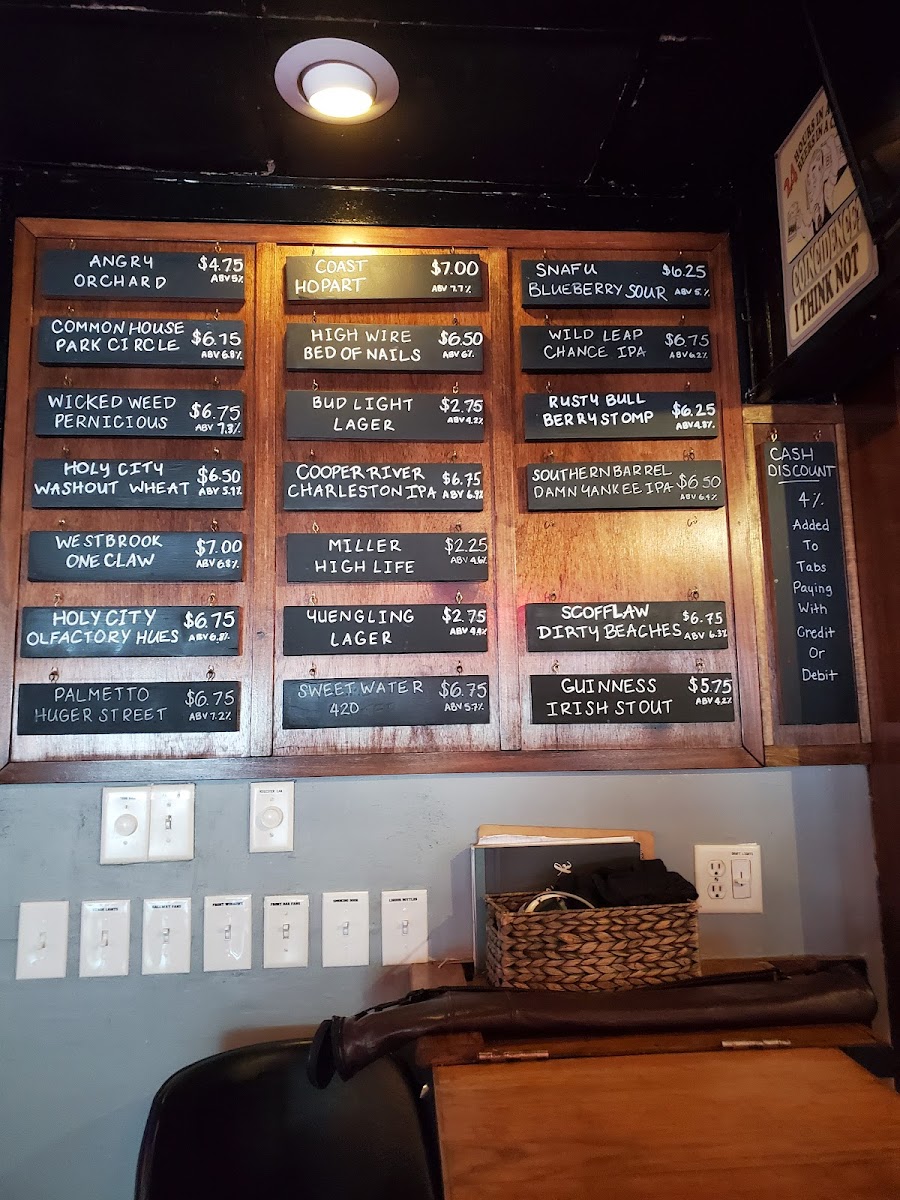 ANGRY
ORCHARD
$4.75
ABV 5%
COMMON HOUSE
PARK CIRCLE
$6.75
ABV 6.8%
WICKED WEED
PERNICIOUS
$6.75
ABV 7.3%
HOLY CITY
WASHOUT WHEAT
$6.50
ABV 5.1%
WESTBROOK
ONE CLAW
$7.00
ABV 6.8%
HOLY CITY
OLFACTORY HUES
$6.75
PALMETTO
HUGER STREET
$6.75
ABV 7.2%
COAST
HOPART
$7.00
ABV 7.7%
HIGH WIRE
BED OF NAILS
$6.50
ABV 6%
BUD LIGHT
LAGER
$2.75
ABV 4.2%
COOPER RIVER
CHARLESTON IPA
$6.75
ABV 6.9%
MILLER
HIGH LIFE
$2.25
ABV 4.6%
YUENGLING
LAGER
$2.75
ABV 4.4%
SWEET WATER
420
$6.75
ABV 5.7%
SNAFU
BLUEBERRY SOUR
$6.25
ABV 5.%
WILD LEAP
CHANCE IPA
$6.75
ABV 6.2%
RUSTY BULL
BERRY STOMP
$6.25
ABV 4.8%
SOUTHERN BARREL
DAMN YANKEE IPA
$6.50
ABV 6.4%
SCOFFLAW
DIRTY BEACHES
$6.75
ABV 6.3%
GUINNESS
IRISH STOUT
$5.75
ABV 4.2%
CASH
DISCOUNT
4%
Added
To
Tabs
Paying
With
Credit
Or
Debit
24
HOURS IN A
BEERS IN A
COINCIDENCE?
I THINK NOT